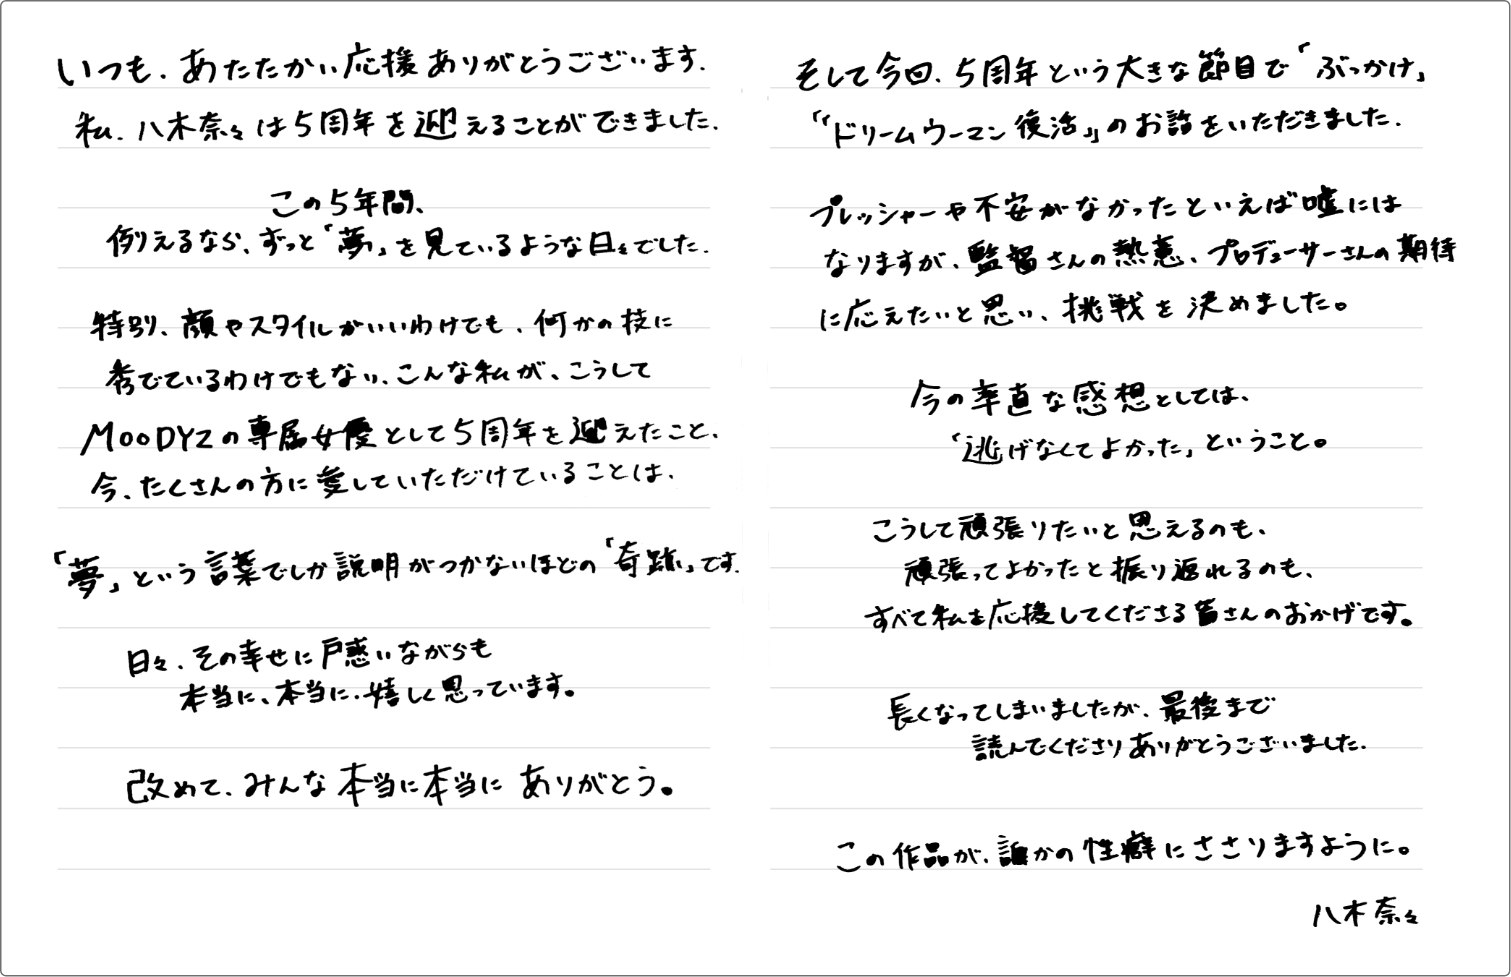 いつも、あたたかい応援ありがとうございます.
私、八木奈々は5周年を迎えることができました.
この5年間、
例えるなら、ずっと「夢」を見ているような日々でした.
特別、顔やスタイルがいいわけでも、何かの技に
秀でているわけでもない、こんな私が、こうして
MOODYZの専属女優として5周年を迎えたこと、
今、たくさんの方に愛していただけていることは、
「夢」という言葉でしか説明がつかないほどの「奇跡」です.
日々、その幸せに戸惑いながらも
本当に、本当に、嬉しく思っています。
改めて、みんな本当に本当に ありがとう。
そして今回、5周年という大きな節目で「ぶっかけ」
「“ドリームウーマン復活”」のお話をいただきました.
プレッシャーや不安がなかったといえば嘘には
なりますが、監督さんの熱意、プロデューサーさんの期待
に応えたいと思い、挑戦を決めました。
今の率直な感想としては、
「逃げなくてよかった」ということ。
こうして頑張りたいと思えるのも、
頑張ってよかったと振り返れるのも、
すべて私を応援してくださる皆さんのおかげです。
長くなってしまいましたが、最後まで
読んでくださりありがとうございました.
この作品が、誰かの性癖にささりますように。
八木奈々